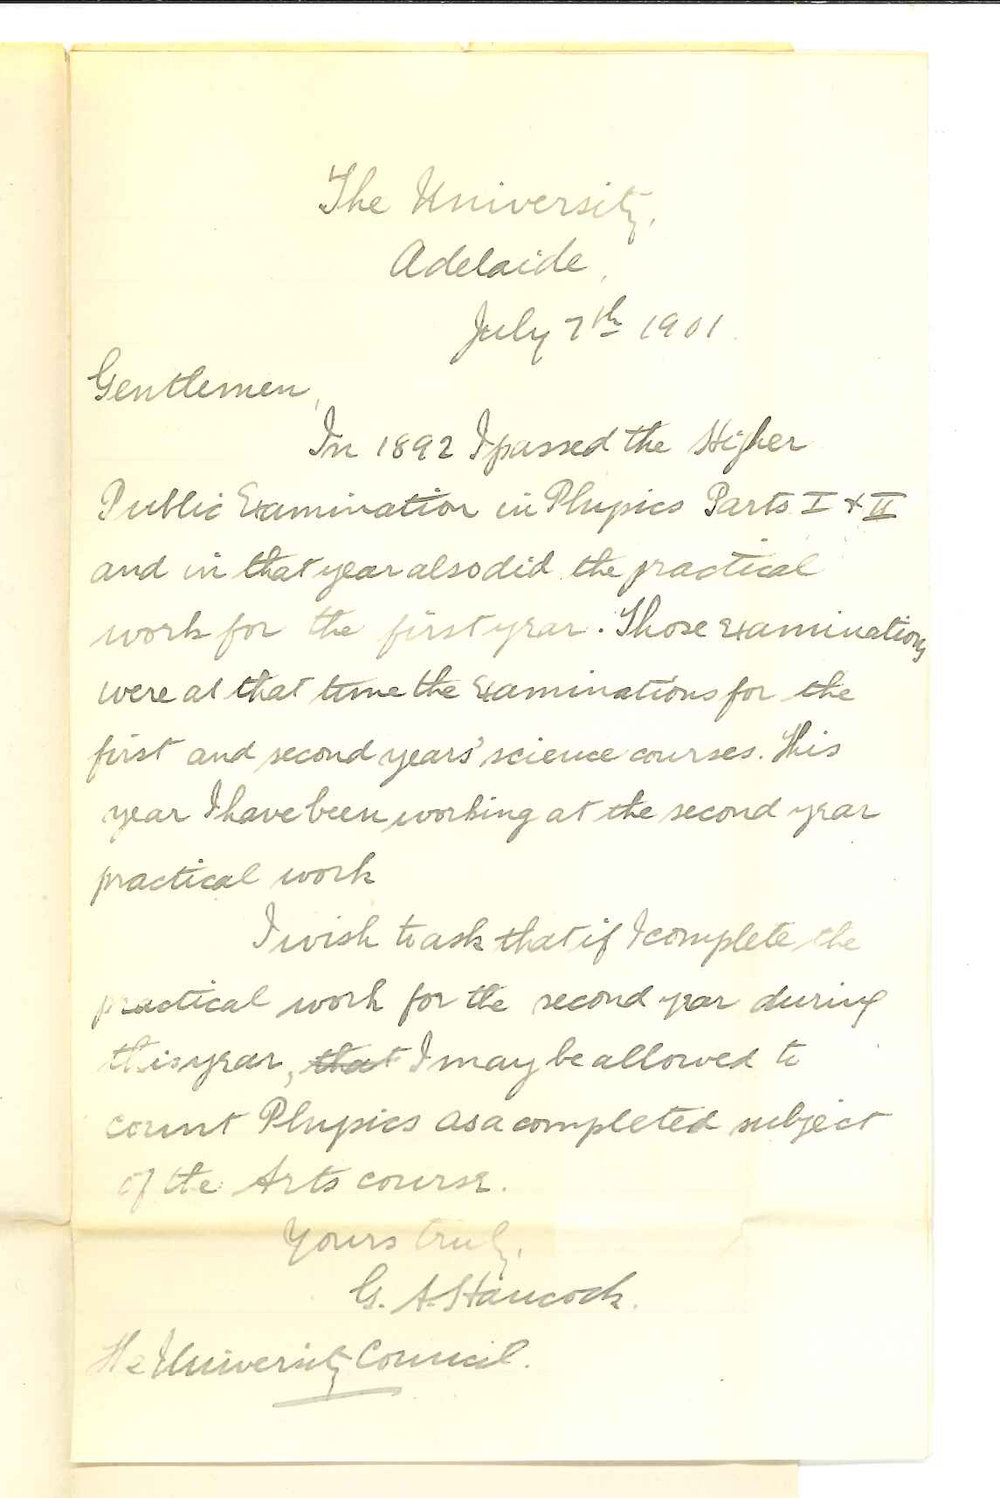 The University,
Adelaide,
July 7th 1901.
Gentlemen,
In 1892 I passed the Higher
Public Examination in Physics Parts I & II
and in that year also did the practical
work for the first year. Those examinations
were at that time the examinations for the
first and second years' science courses. This
year I have been working at the second year
practical work
I wish to ask that if I complete the
practical work for the second year during
this year, that I may be allowed to
count Physics as a completed subject
of the Arts course.
Yours truly,
G. A. Hancock.
The University Council.